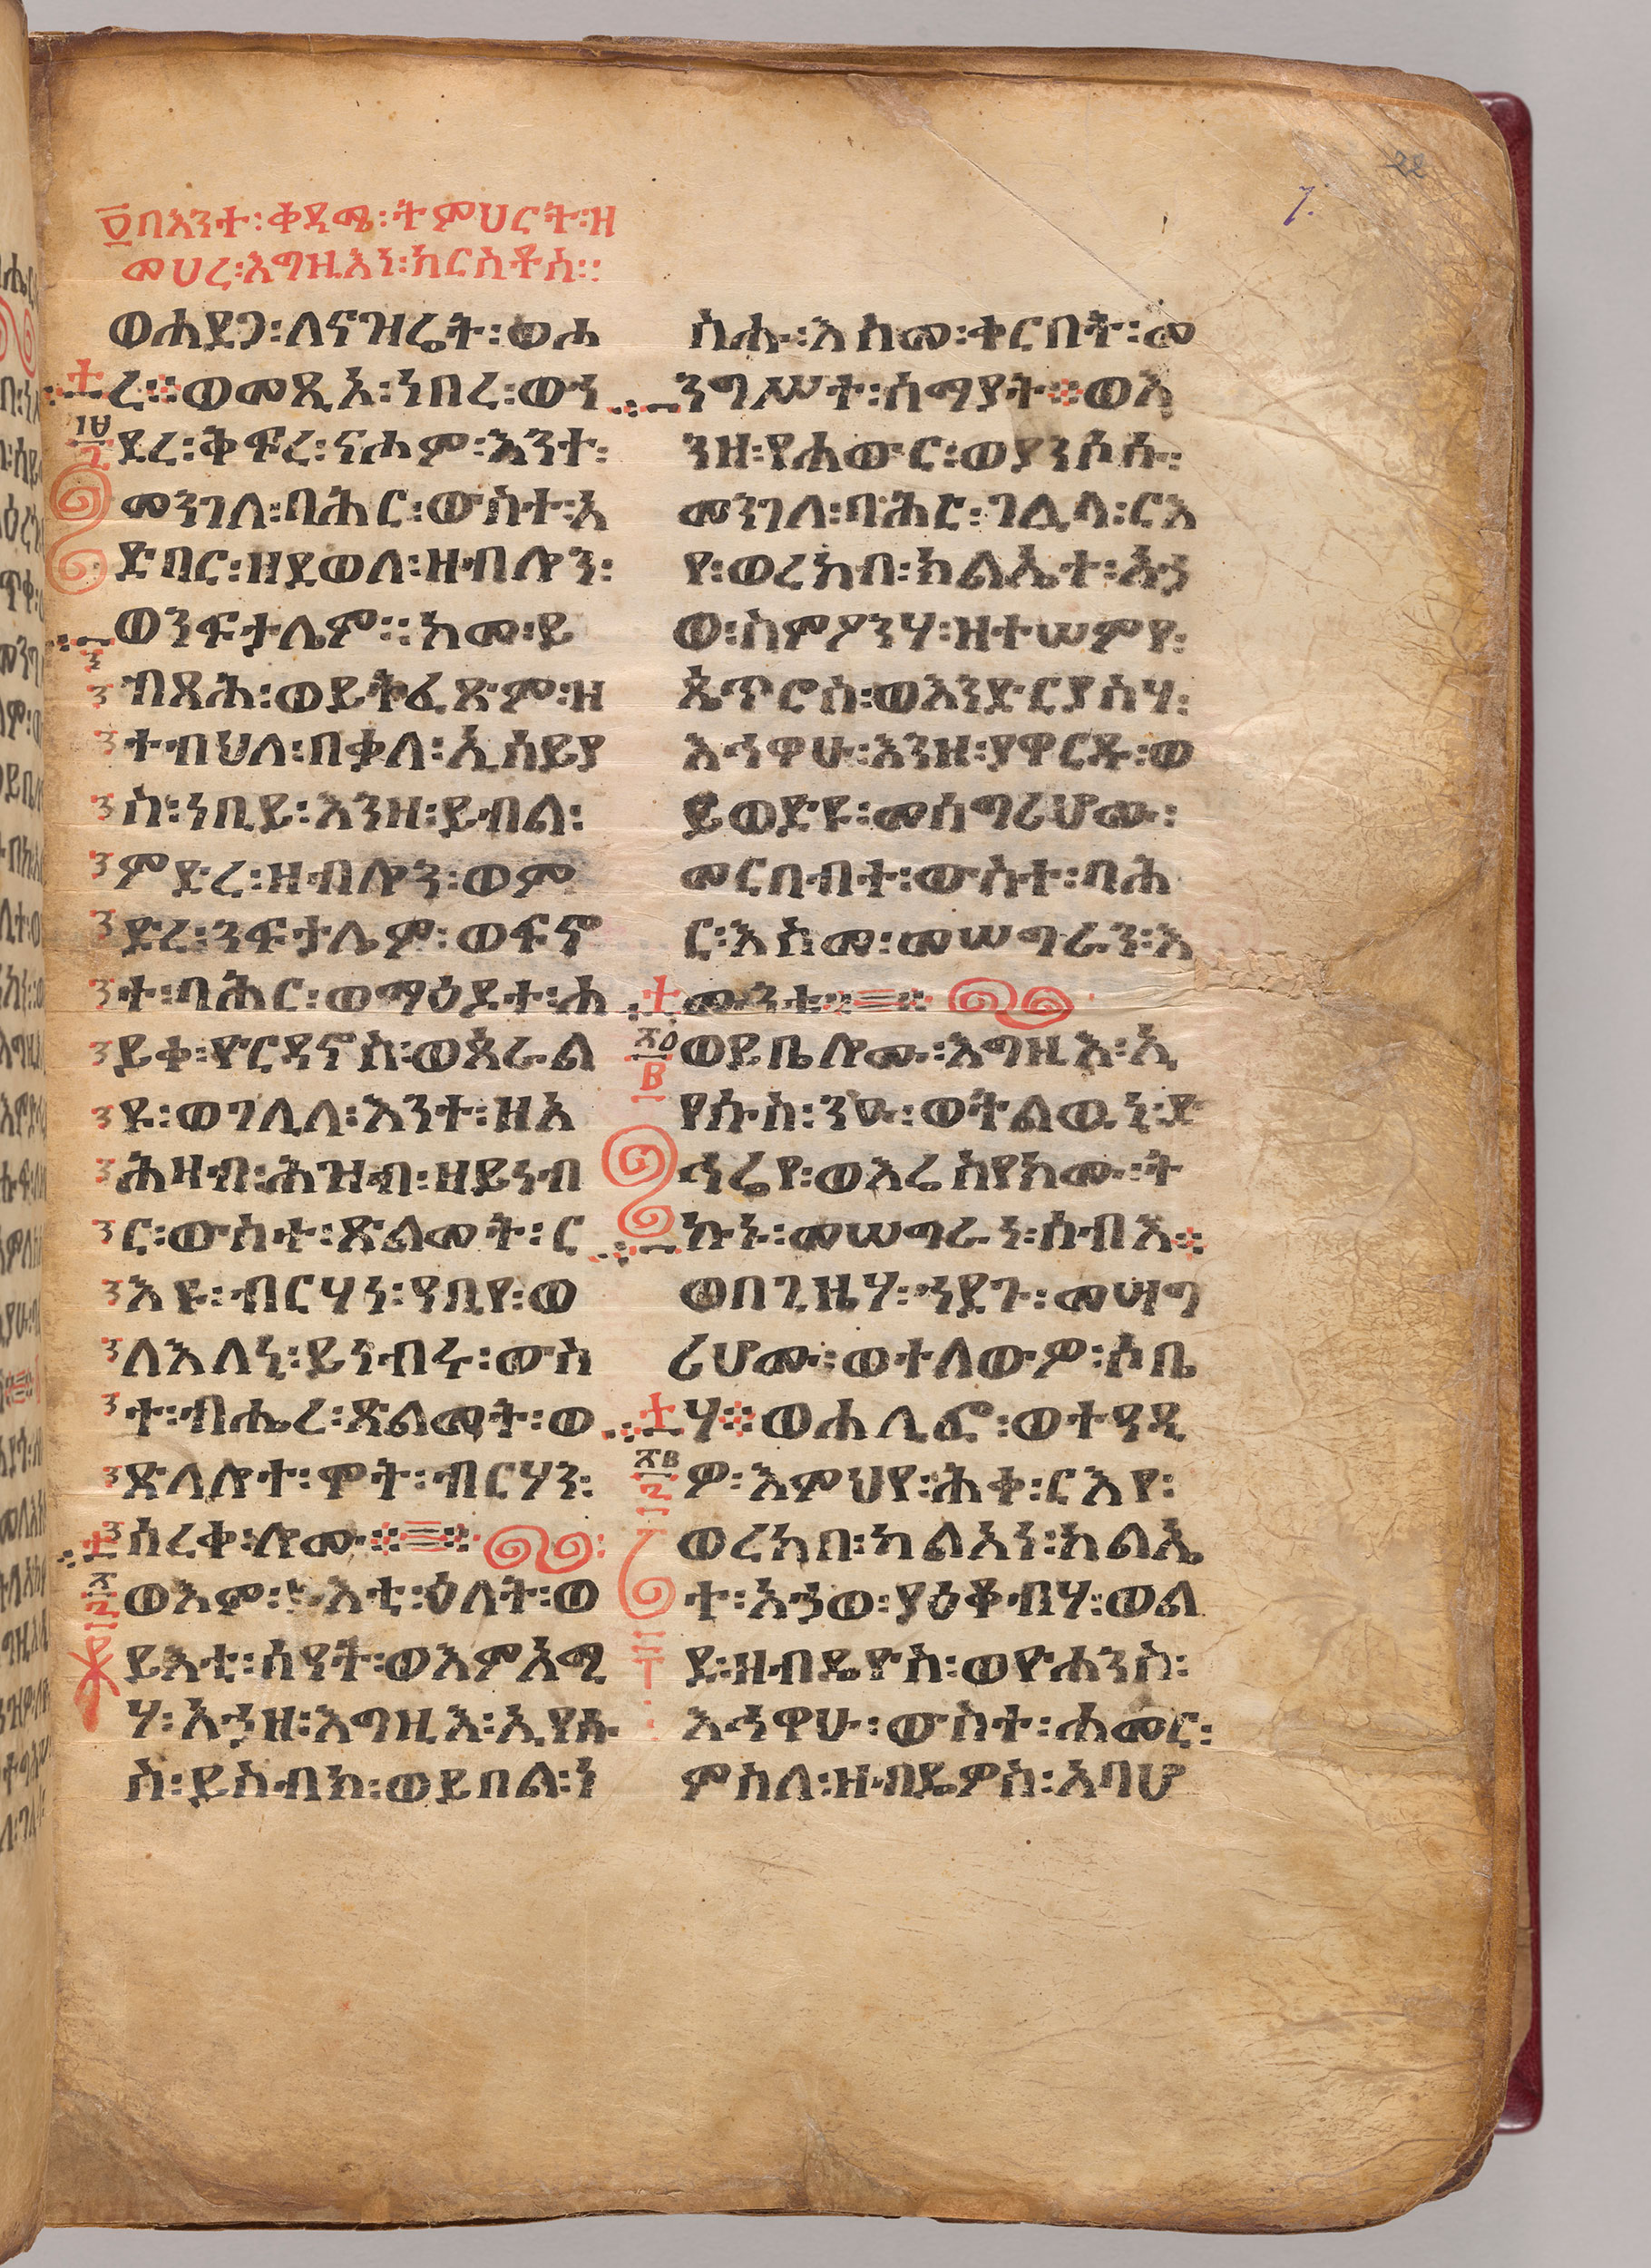 ፬በእንተ፡ቀዳሚ፡ትምህርት፡ዘ
መሀረ፡እግዚእነ፡ክርስቶስ፡፡
ወሐደጋ፡ለናዝሬት፡ወሐ
ረ፨ወመጺአ፡ነበረ፡ውን
ደረ፡ቅፍረ፡ናሖም፡እንተ፡
መንገለ፡ባሕር፡ውስተ፡አ
ድባር፡ዘደወለ፡ዘብሎን፡
ወንፍታሌም፡፡ከመ፡ይ
ብጻሕ፡ወይትፈጸም፡ዘ
ተብህለ፡በቃለ፡ኢሳይያ
ስ፡ነቢይ፡እንዘ፡ይብል፡
ምድረ፡ዘብሎን፡ወም
ድረ፡ንፍታሌም፡ወፍኖ
ተ፡ባሕር፡ወማዕዶተ፡ሐ
ይቀ፡ዮርዳኖስ፡ወጸራል
ዩ፡ወገሊላ፡እንተ፡ዘአ
ሕዛብ፡ሕዝብ፡ዘይነብ
ር፡ውስተ፡ጽልመት፡ር
እዩ፡ብርሃነ፡ዓቢየ፡ወ
ለእለኒ፡ይነብሩ፡ውስ
ተ፡ብሔረ፡ጽልመት፡ወ
ጽላሎተ፡ሞት፡ብርሃን፡
ሠረቀ፡ሎሙ፨
ወእም፡ይእቲ፡ዕለት፡ወ
ይእቲ፡ሰዓት፡ወእምአሜ
ሃ፡አኀዘ፡እግዚእ፡ኢየሱ
ስ፡ይስብክ፡ወይበል፡ነ
ስሑ፡እስመ፡ቀርበት፡መ
ንግሥተ፡ሰማያት፨ወእ
ንዘ፡የሐውር፡ወያንሶሱ፡
መንገለ፡ባሕር፡ገሊላ፡ርእ
የ፡ወረከበ፡ክልኤተ፡አኃ
ወ፡ስምዖንሃ፡ዘተሠምየ፡
ጴጥሮስ፡ወእንድርያስሃ፡
እኅዋሁ፡እንዘ፡ያዋርዱ፡ወ
ይወድዩ፡መሰግሪሆሙ፡
መርበብተ፡ውስተ፡ባሕ
ር፡እስመ፡መሠግራን፡እ
ሙንቱ፨
ወይቤሎሙ፡እግዚእ፡ኢ
የሱስ፡ንዑ፡ወትልዉኒ፡ድ
ኅሬየ፡ወእሬስየክሙ፡ት
ኩኑ፡መሠግራነ፡ሰብእ፨
ወበጊዜሃ፡ኀደጉ፡መሣግ
ሪሆሙ፡ወተለውዎ፡ሶቤ
ሃ፨ወሐሊፎ፡ወተዓዲ
ዎ፡እምህየ፡ሕቀ፡ርእየ፡
ወረከበ፡ካልአነ፡ክልኤ
ተ፡አኃወ፡ያዕቆብሃ፡ወል
ደ፡ዘብዴዮስ፡ወዮሐንስ፡
እኅዋሁ፡ውስተ፡ሐመር፡
ምስለ፡ዘብዴዎስ፡አባሆ